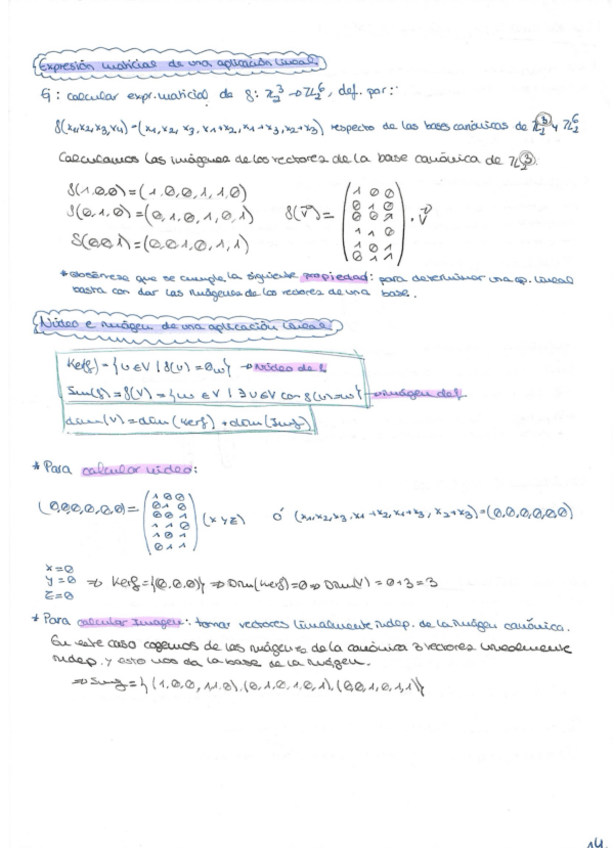 Expresión matricial de una aplicación lineal.
Ej: calcular expr. matricial de f: Z₂³ → Z₂⁶, def. por:
f(x₁,x₂,x₃,x₄) = (x₁, x₂, x₃, x₁+x₂, x₁+x₃, x₂+x₃) respecto de las bases canónicas de Z₂³ y Z₂⁶
Calculamos las imágenes de los vectores de la base canónica de Z₂³.
f(1,0,0) = (1,0,0,1,1,0)
f(0,1,0) = (0,1,0,1,0,1)
f(0,0,1) = (0,0,1,0,1,1)
f(v⃗) =
1 0 0
0 1 0
0 0 1
1 1 0
1 0 1
0 1 1
· v⃗
* obsérvese que se cumple la siguiente propiedad: para determinar una ap. lineal
basta con dar las imágenes de los vectores de una base.
Núcleo e imágen de una aplicación lineal.
Kerf) = {u ∈ V | f(u) = 0w} → Núcleo de f
Im(f) = f(V) = {w ∈ V | ∃ u ∈ V con f(u) = w} → imágen de f
dim(V) = dim(Kerf) + dim(Imf)
* Para calcular núcleo:
(0,0,0,0,0,0) =
1 0 0
0 1 0
0 0 1
1 1 0
1 0 1
0 1 1
(x y z) ó (x₁, x₂, x₃, x₁+x₂, x₁+x₃, x₂+x₃) = (0,0,0,0,0,0)
x = 0
y = 0 ⇒ Kerf = {(0,0,0)} ⇒ Dim(Kerf) = 0 ⇒ Dim(V) = 0+3 = 3
z = 0
* Para calcular Imagen: tomar vectores linealmente indep. de la imágen canónica.
En este caso cogemos de las imágenes de la canónica 3 vectores linealmente
indep. y esto nos da la base de la imágen.
⇒ Imf = {(1,0,0,1,1,0), (0,1,0,1,0,1), (0,0,1,0,1,1)}
14